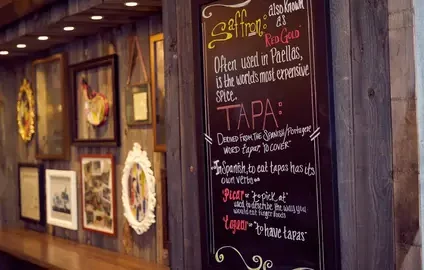 Saffron: also known
as
"Red Gold"
Often used in Paellas,
is the world's most expensive
spice.
TAPA:
DERIVED FROM THE Spanish/Portugese
WORD Tapar, "TO COVER"
In Spanish, to eat tapas has its
own verbs
Picar "to pick at"
used to describe the way you
would eat finger foods
Tapear - "to have tapas"